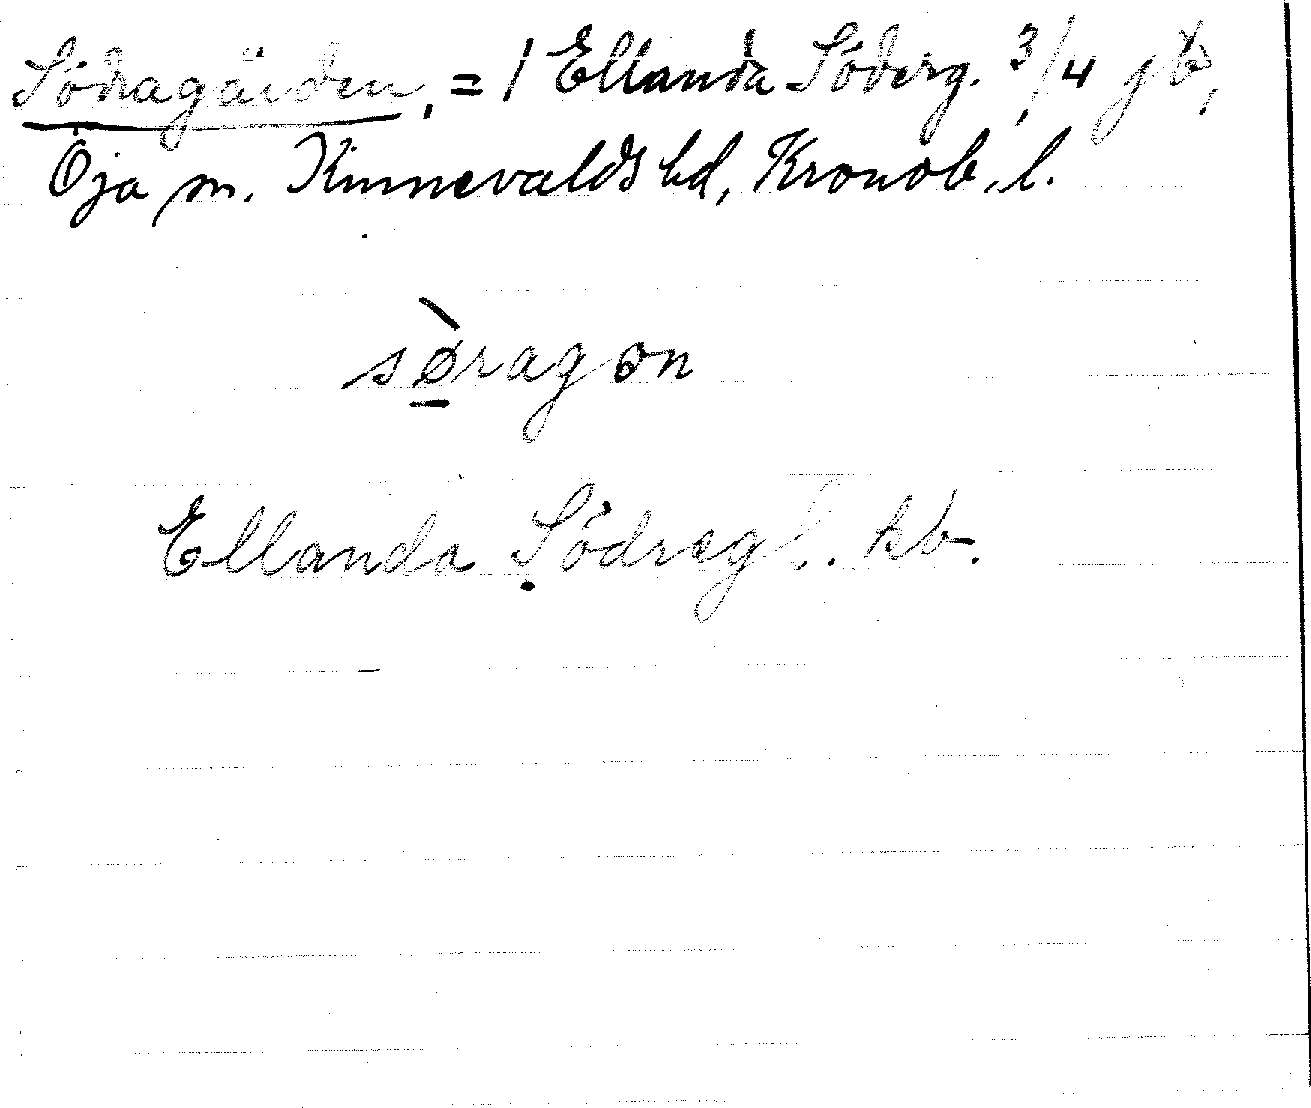 Södragården, = 1 Ellanda Söderg. 3/4 gb,
Öja sn. Kinnevalds hd, Kronob. l.
sø̀ragon
Ellanda Södreg . kb.